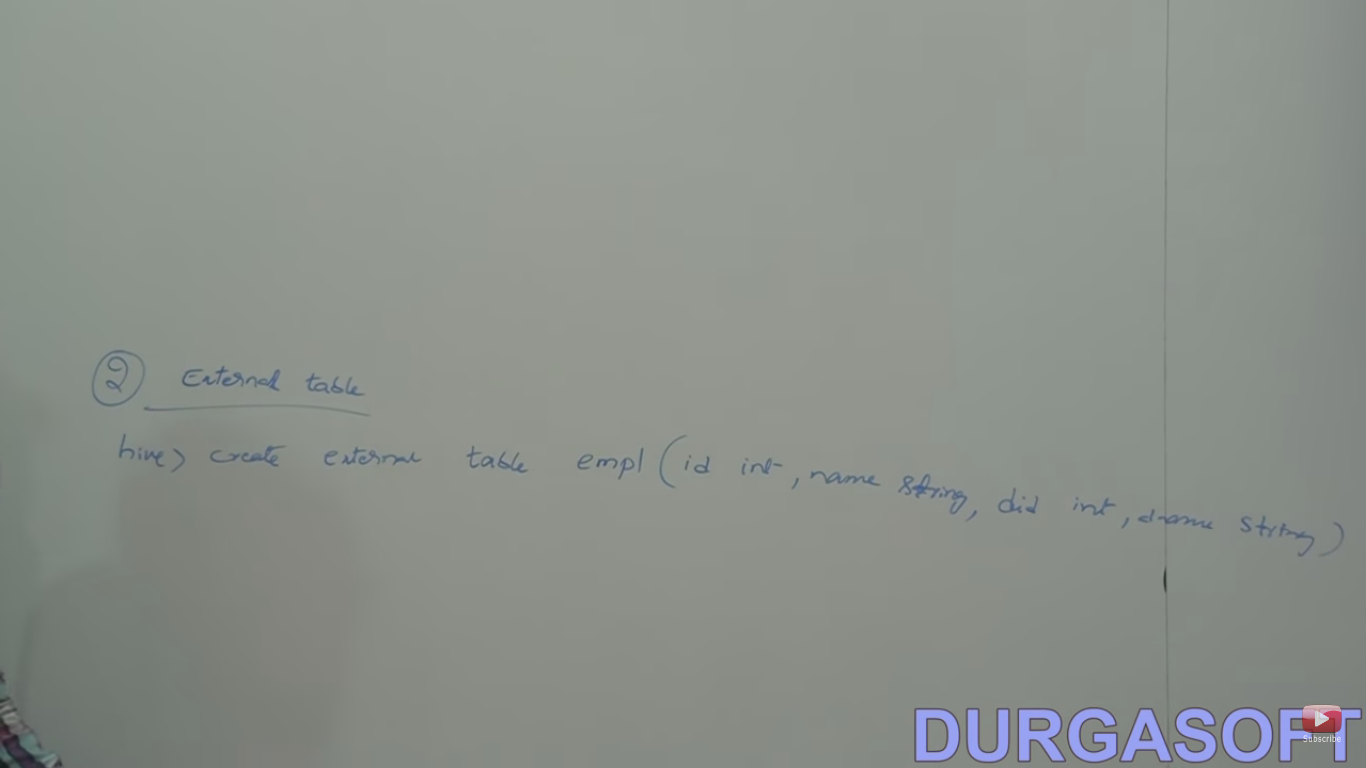 2 External table
hive> create external table empl (id int, name string, did int, dname string)
DURGASOFT
Subscribe